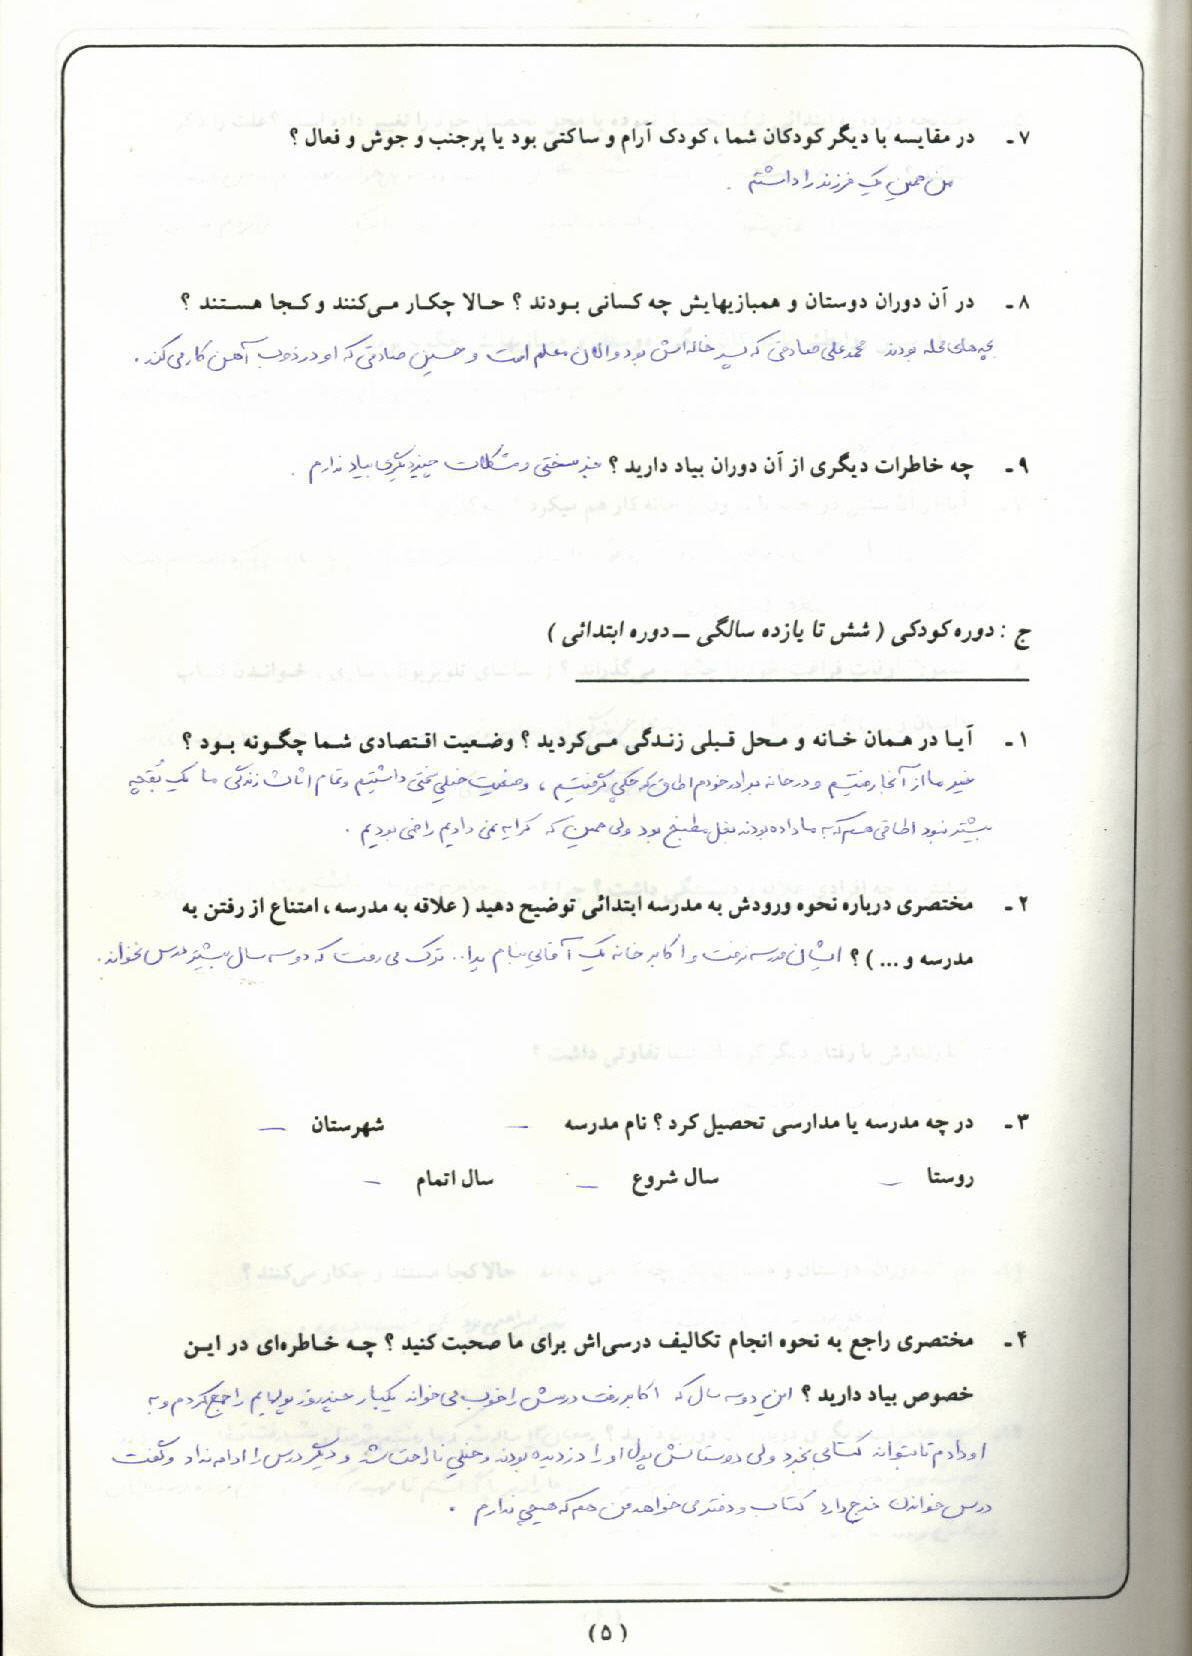 ۷ـ در مقایسه با دیگر کودکان شما ، کودک آرام و ساکتی بود یا پرجنب و جوش و فعال ؟
من همین یک فرزند را داشتم .
۸ـ در آن دوران دوستان و همبازیهایش چه کسانی بودند ؟ حالا چکار می‌کنند و کجا هستند ؟
بچه‌های محله بودند محمدعلی صادقی که پسر خاله‌اش بود و الان معلم است و حسین صادقی که او در ذوب آهن کار می‌کند .
۹ـ چه خاطرات دیگری از آن دوران بیاد دارید ؟ جز سختی و مشکلات چیز دیگری بیاد ندارم .
ج : دوره کودکی ( شش تا یازده سالگی ــ دوره ابتدائی )
۱ـ آیا در همان خانه و محل قبلی زندگی می‌کردید ؟ وضعیت اقتصادی شما چگونه بود ؟
خیر ما از آنجا رفتیم و در خانه برادر خودم اطاق کوچکی گرفتیم ، وضعیت خیلی سختی داشتیم و تمام اثاث زندگی ما یک بقچه
بیشتر نبود اطاقی هم که به ما داده بودند بغل مطبخ بود ولی همین که کرایه نمی دادیم راضی بودیم .
۲ـ مختصری درباره نحوه ورودش به مدرسه ابتدائی توضیح دهید ( علاقه به مدرسه ، امتناع از رفتن به
مدرسه و ... ) ؟ ایشان مدرسه نرفت و اکابر خانه یک آقایی بنام یدا.. ترک می رفت که دو سه سال بیشتر درس نخواند .
۳ـ در چه مدرسه یا مدارسی تحصیل کرد ؟ نام مدرسه — شهرستان —
روستا — سال شروع — سال اتمام —
۴ـ مختصری راجع به نحوه انجام تکالیف درسی‌اش برای ما صحبت کنید ؟ چه خاطره‌ای در این
خصوص بیاد دارید ؟ این دو سه سال که اکابر رفت درسش را خوب می خواند یکبار چند روز پولهایم را جمع کردم و به
او دادم تا بتواند کتابی بخرد ولی دوستانش پول او را دزدیده بودند و خیلی ناراحت شد و دیگر درس را ادامه نداد و گفت
درس خواندن خرج دارد کتاب و دفتر می خواهد من هم که هیچی ندارم .
(۵)